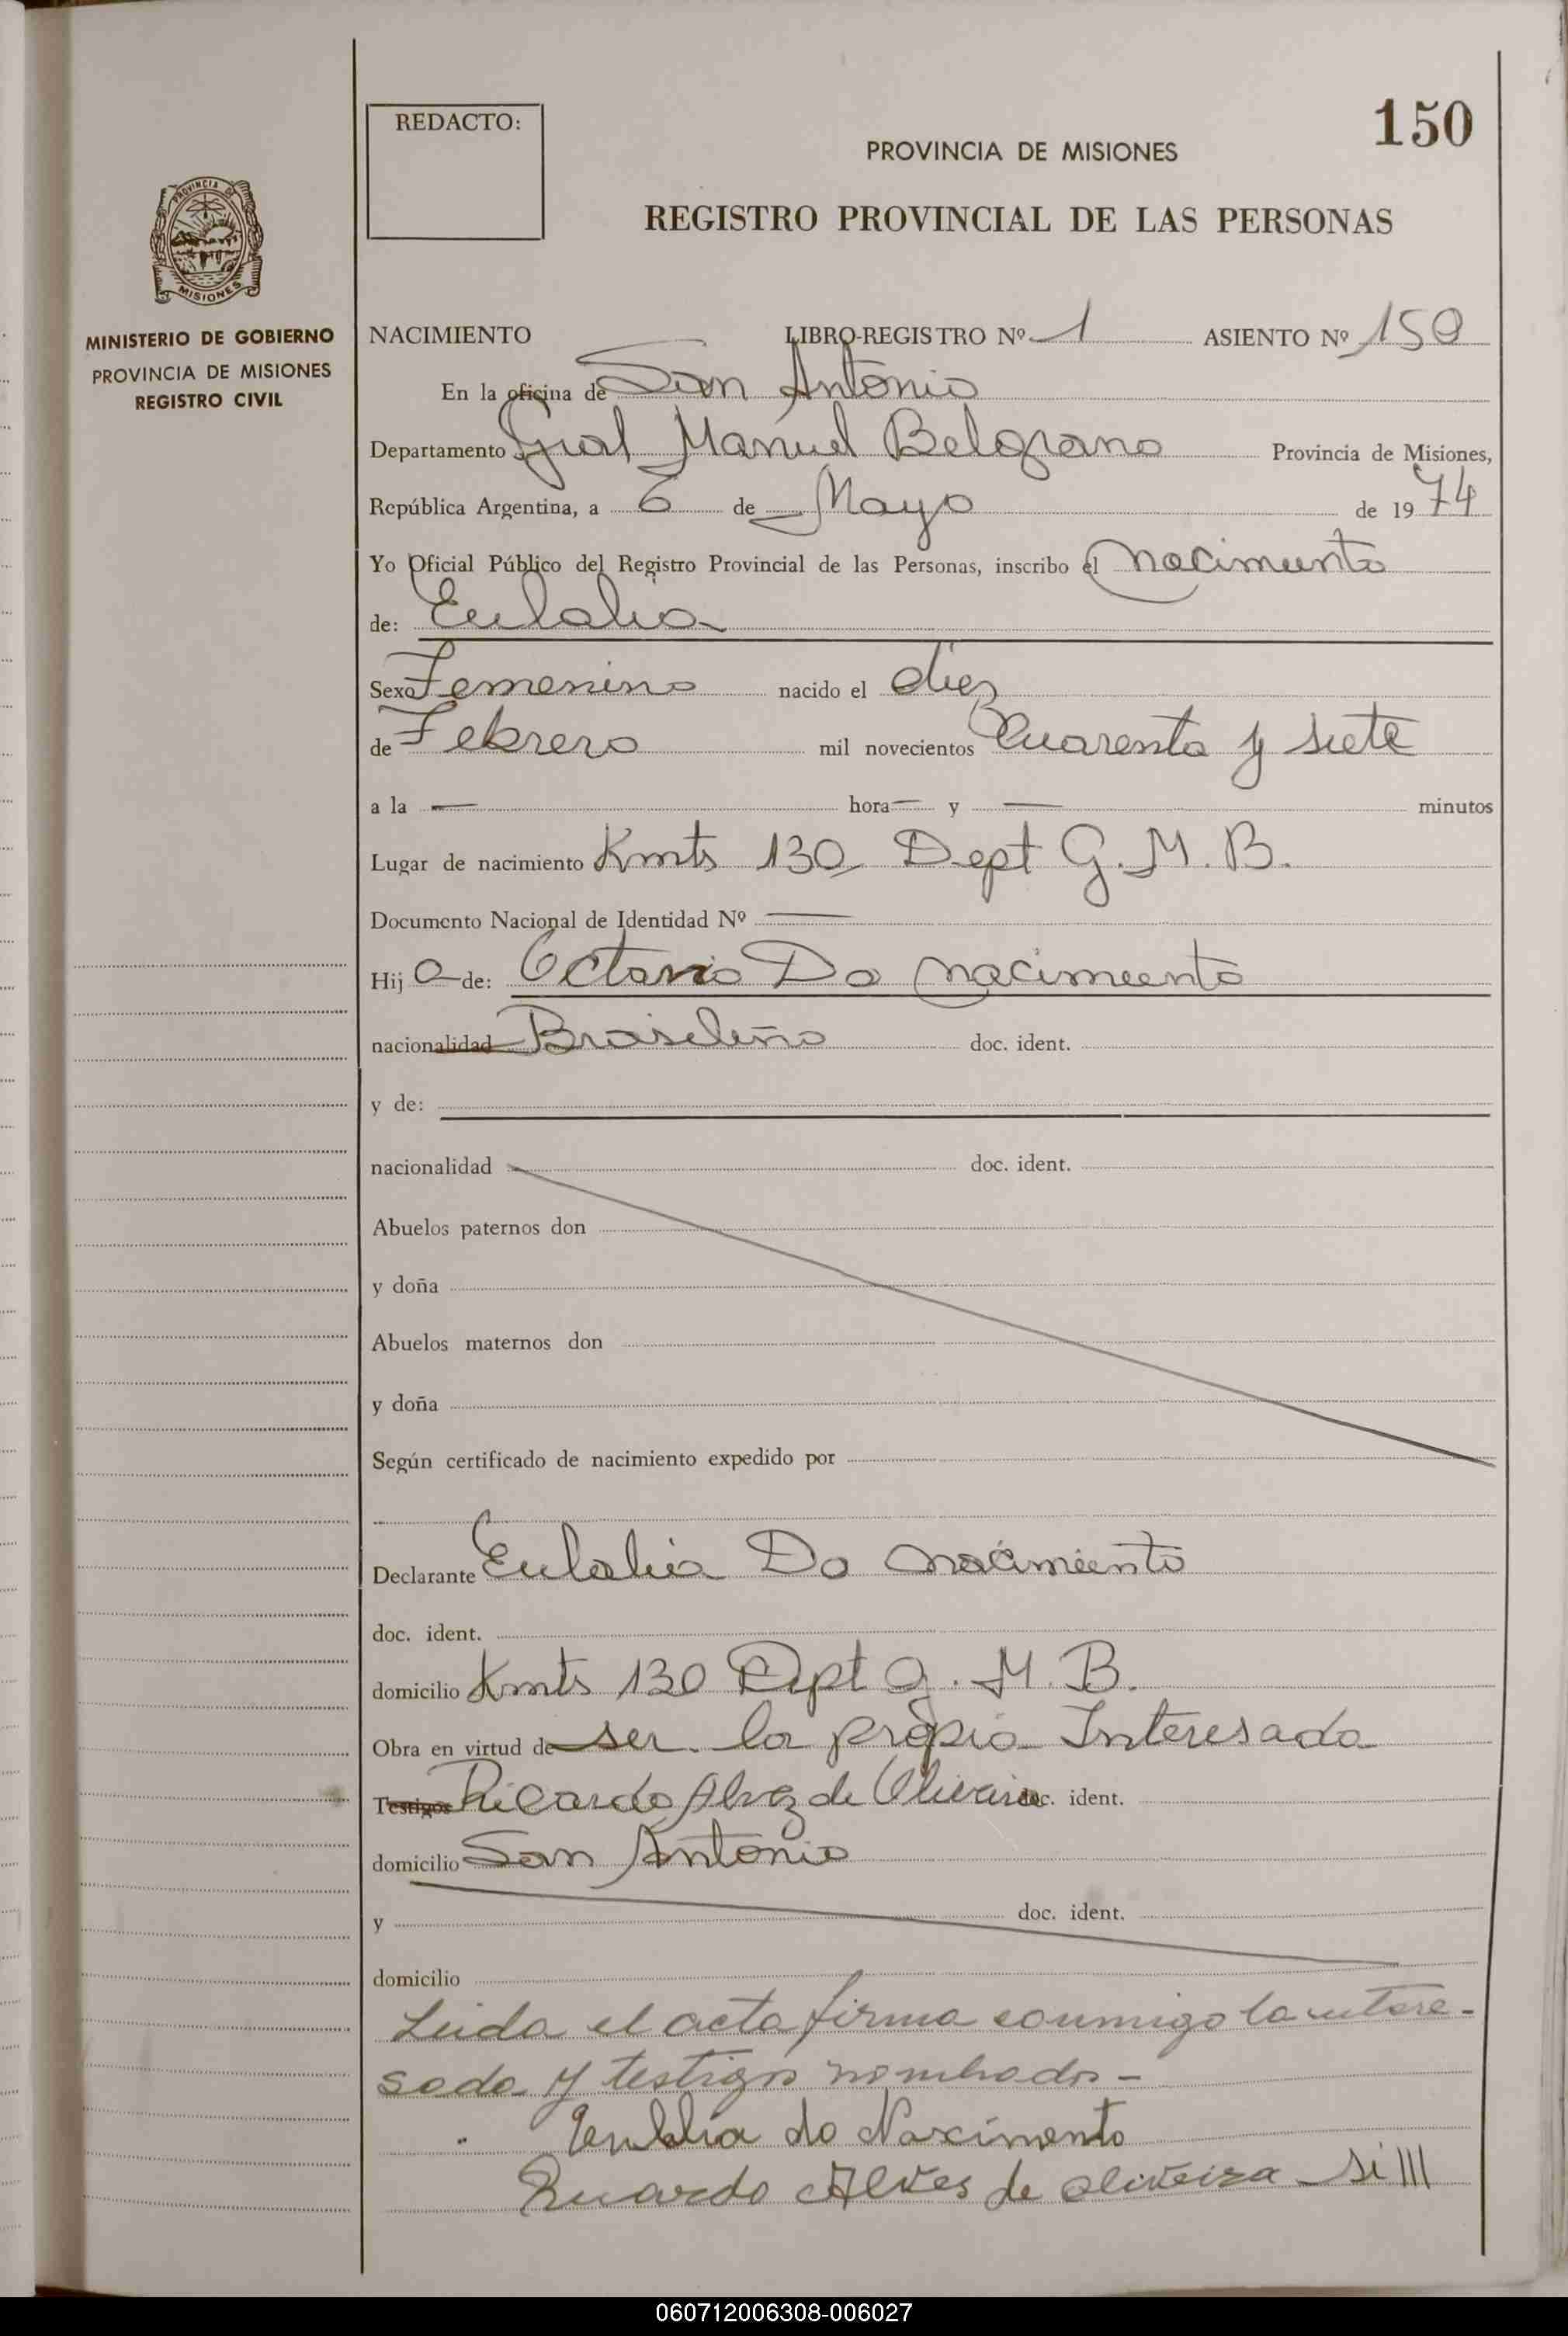 150
REDACTO:
PROVINCIA DE MISIONES
REGISTRO PROVINCIAL DE LAS PERSONAS
PROVINCIA DE
MISIONES
MINISTERIO DE GOBIERNO
PROVINCIA DE MISIONES
REGISTRO CIVIL
NACIMIENTO LIBRO-REGISTRO Nº 1 ASIENTO Nº 150
En la oficina de San Antonio
Departamento Gral Manuel Belgrano Provincia de Misiones,
República Argentina, a 6 de Mayo de 1974
Yo Oficial Público del Registro Provincial de las Personas, inscribo el nacimiento
de: Eulalia
Sexo Femenino nacido el diez
de Febrero mil novecientos Cuarenta y siete
a la — hora — y — minutos
Lugar de nacimiento Kmts 130 Dept G. M. B.
Documento Nacional de Identidad Nº —
Hija de: Octavio Do nacimiento
nacionalidad Brasileño doc. ident.
y de:
nacionalidad doc. ident.
Abuelos paternos don
y doña
Abuelos maternos don
y doña
Según certificado de nacimiento expedido por
Declarante Eulalia Do nacimiento
doc. ident.
domicilio Kmts 130 Dept G. M. B.
Obra en virtud de ser la propia Interesada
Testigos Ricardo Alvez de Oliveira doc. ident.
domicilio San Antonio
y doc. ident.
domicilio
Leida el acta firma conmigo la intere-
sada y testigos nombrados -
Eulalia do Nascimento
Ricardo Alves de oliveira
060712006308-006027